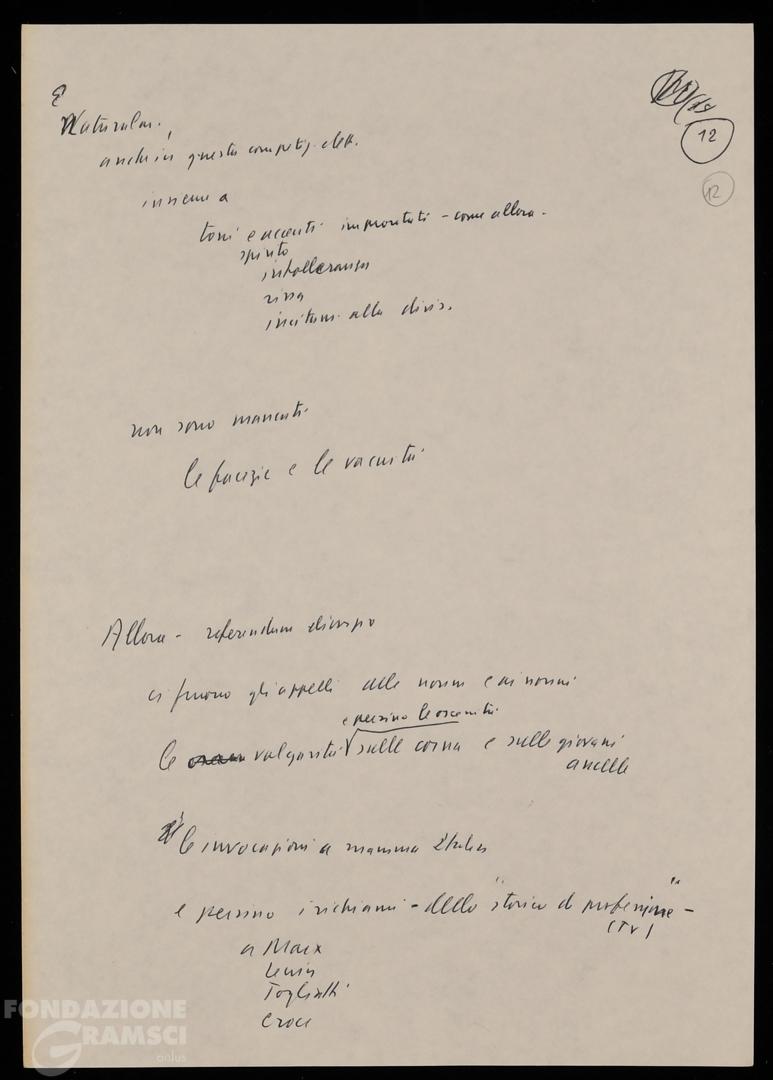 E
Naturalm.
12
anche in questa competiz. elett.
12
insieme a
toni e accenti improntati - come allora -
spirito
intolleranza
rissa
incitam. alla divis.
non sono mancati
le facezie e le vacuità
Allora - referendum divorzio
ci furono gli appelli alle nonne e ai nonni
e persino le oscenità
le volgarità sulle corna e sulle giovani
ancelle
le invocazioni a mamma Italia
e persino i richiami - dello "storico di professione" -
(TV)
a Marx
Lenin
Togliatti
Croce
FONDAZIONE
GRAMSCI
onlus